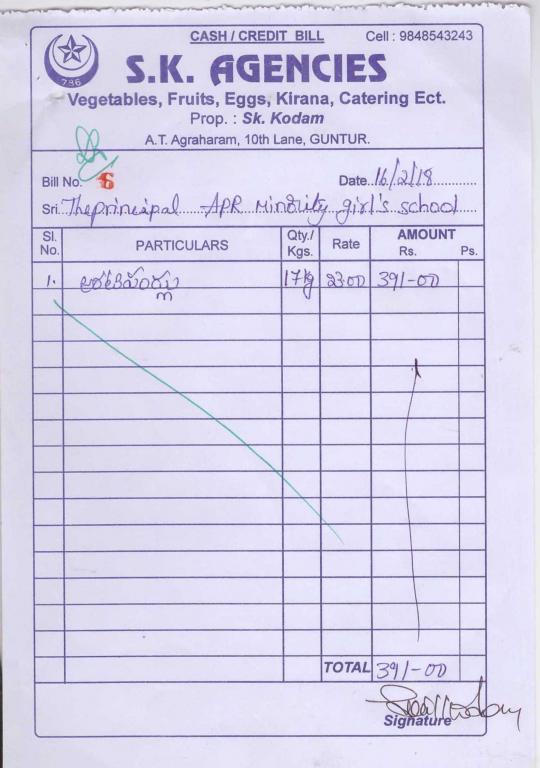 CASH / CREDIT BILL Cell : 9848543243
786
S.K. AGENCIES
Vegetables, Fruits, Eggs, Kirana, Catering Ect.
Prop. : Sk. Kodam
A.T. Agraharam, 10th Lane, GUNTUR.
Bill No. 6 Date 16/2/18
Sri. The principal APR Minority girl's school
Sl. No. PARTICULARS Qty./ Kgs. Rate AMOUNT Rs. Ps.
1. అరటిపండ్లు 17kg 23.00 391-00
TOTAL 391-00
Signature